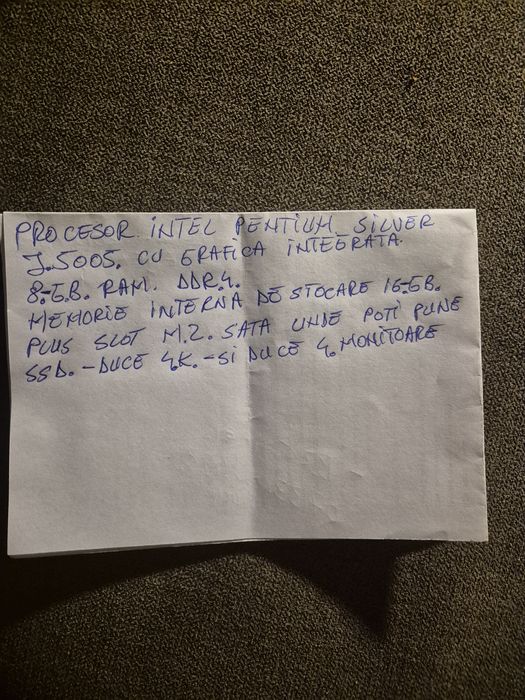 PROCESOR INTEL PENTIUM SILVER
J.5005. CU GRAFICA INTEGRATA.
8.G.B. RAM. DDR.4.
MEMORIE INTERNA DE STOCARE 16.GB.
PLUS SLOT M.2. SATA UNDE POTI PUNE
SSD. - DUCE 4.K. - SI DUCE 4. MONITOARE